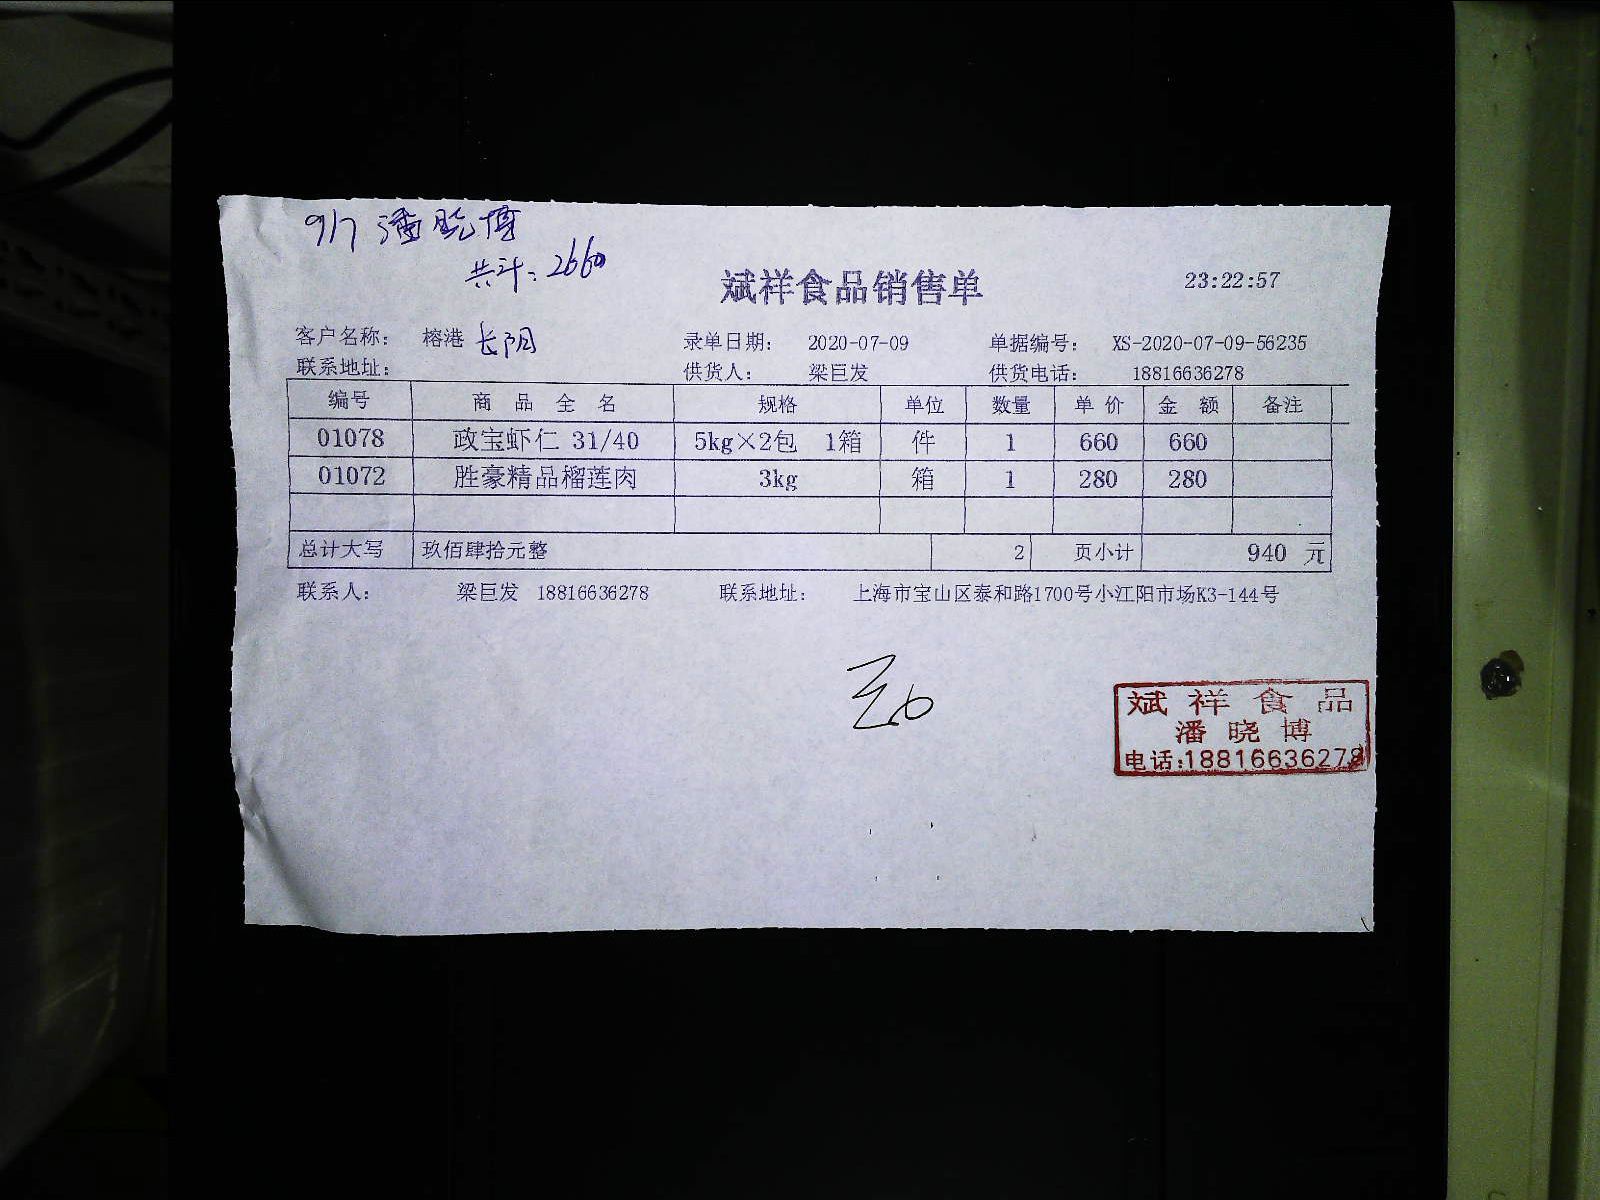 9/7 潘晓博
共计：2660
斌祥食品销售单 23:22:57
客户名称： 榕港 长阳 录单日期： 2020-07-09 单据编号： XS-2020-07-09-56235
联系地址： 供货人： 梁巨发 供货电话： 18816636278
编号 商 品 全 名 规格 单位 数量 单 价 金 额 备注
01078 政宝虾仁 31/40 5kg×2包 1箱 件 1 660 660
01072 胜豪精品榴莲肉 3kg 箱 1 280 280
总计大写 玖佰肆拾元整 2 页小计 940 元
联系人： 梁巨发 18816636278 联系地址： 上海市宝山区泰和路1700号小江阳市场K3-144号
斌 祥 食 品
潘 晓 博
电话:18816636278